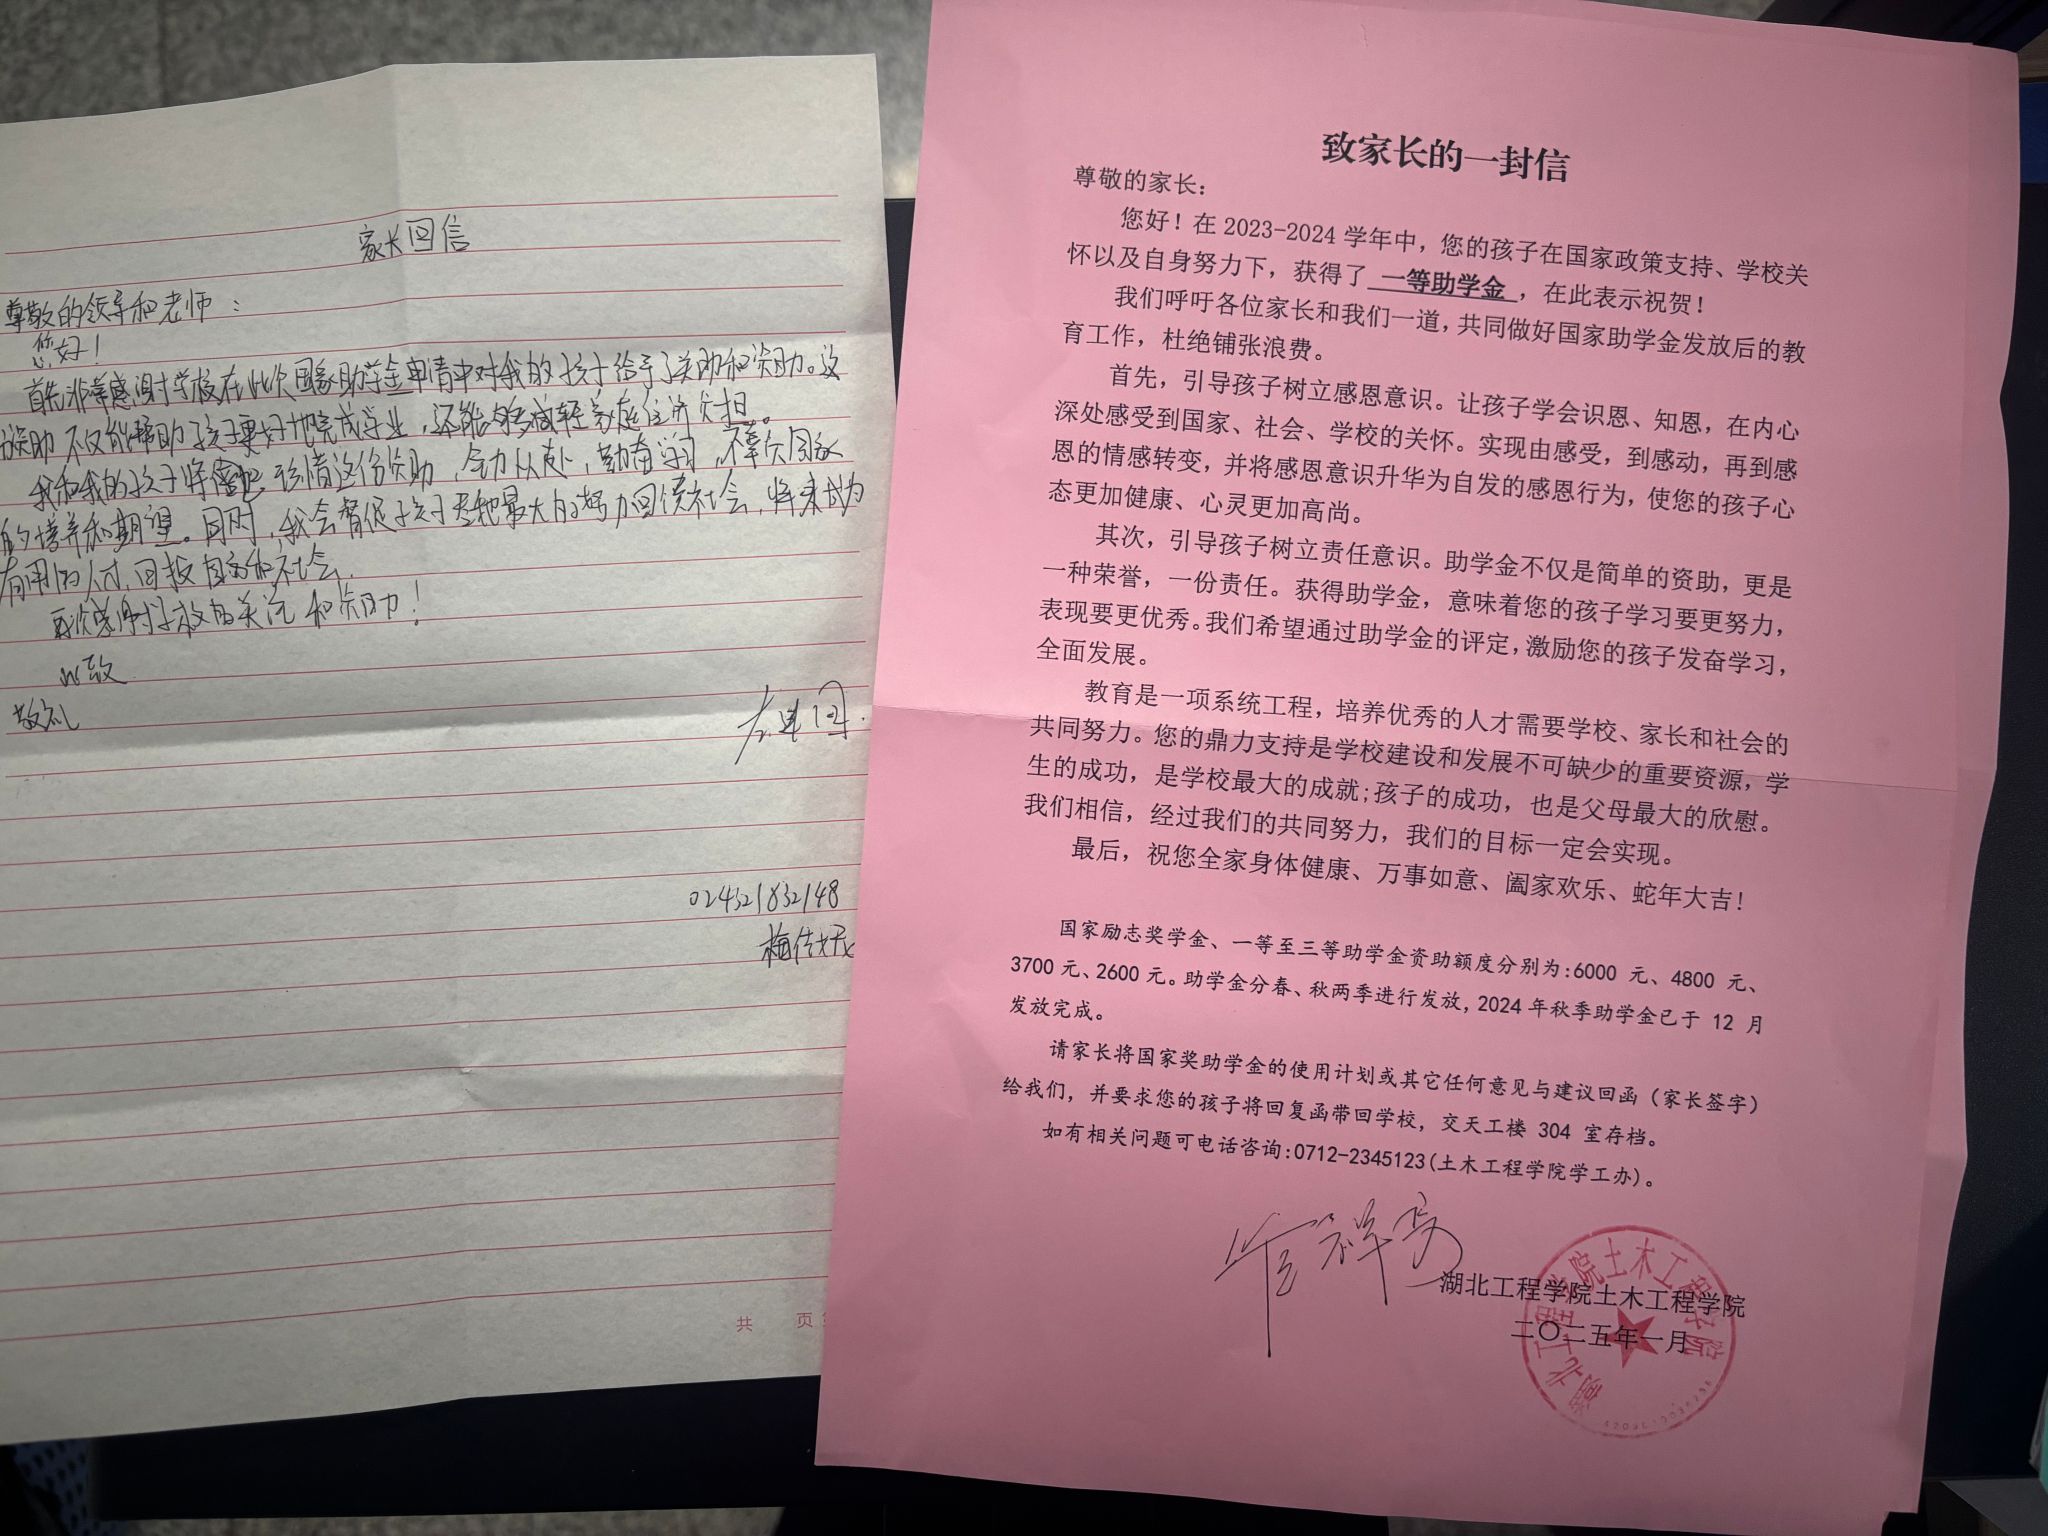 家长回信
尊敬的领导和老师：
您好！
首先非常感谢学校在此次国家助学金申请中对我的孩子给予了关助和资助。这
资助不仅能帮助孩子更好地完成学业，还能够减轻家庭经济负担。
我和我的孩子将珍惜这份资助，全力从赴，勤奋学习，不辜负国家
的培养和期望。同时，我会督促孩子尽他最大的努力回馈社会，将来成为
有用的人材，回报国家和社会。
再次感谢学校的关注和资助！
此致
敬礼
024321832148
共 页
致家长的一封信
尊敬的家长：
您好！在 2023-2024 学年中，您的孩子在国家政策支持、学校关
怀以及自身努力下，获得了 一等助学金 ，在此表示祝贺！
我们呼吁各位家长和我们一道，共同做好国家助学金发放后的教
育工作，杜绝铺张浪费。
首先，引导孩子树立感恩意识。让孩子学会识恩、知恩，在内心
深处感受到国家、社会、学校的关怀。实现由感受，到感动，再到感
恩的情感转变，并将感恩意识升华为自发的感恩行为，使您的孩子心
态更加健康、心灵更加高尚。
其次，引导孩子树立责任意识。助学金不仅是简单的资助，更是
一种荣誉，一份责任。获得助学金，意味着您的孩子学习要更努力，
表现要更优秀。我们希望通过助学金的评定，激励您的孩子发奋学习，
全面发展。
教育是一项系统工程，培养优秀的人才需要学校、家长和社会的
共同努力。您的鼎力支持是学校建设和发展不可缺少的重要资源，学
生的成功，是学校最大的成就；孩子的成功，也是父母最大的欣慰。
我们相信，经过我们的共同努力，我们的目标一定会实现。
最后，祝您全家身体健康、万事如意、阖家欢乐、蛇年大吉！
国家励志奖学金、一等至三等助学金资助额度分别为：6000 元、4800 元、
3700 元、2600 元。助学金分春、秋两季进行发放，2024 年秋季助学金已于 12 月
发放完成。
请家长将国家奖助学金的使用计划或其它任何意见与建议回函（家长签字）
给我们，并要求您的孩子将回复函带回学校，交天工楼 304 室存档。
如有相关问题可电话咨询：0712-2345123（土木工程学院学工办）。
湖北工程学院土木工程学院
二〇二五年一月
湖北工程学院土木工程学院